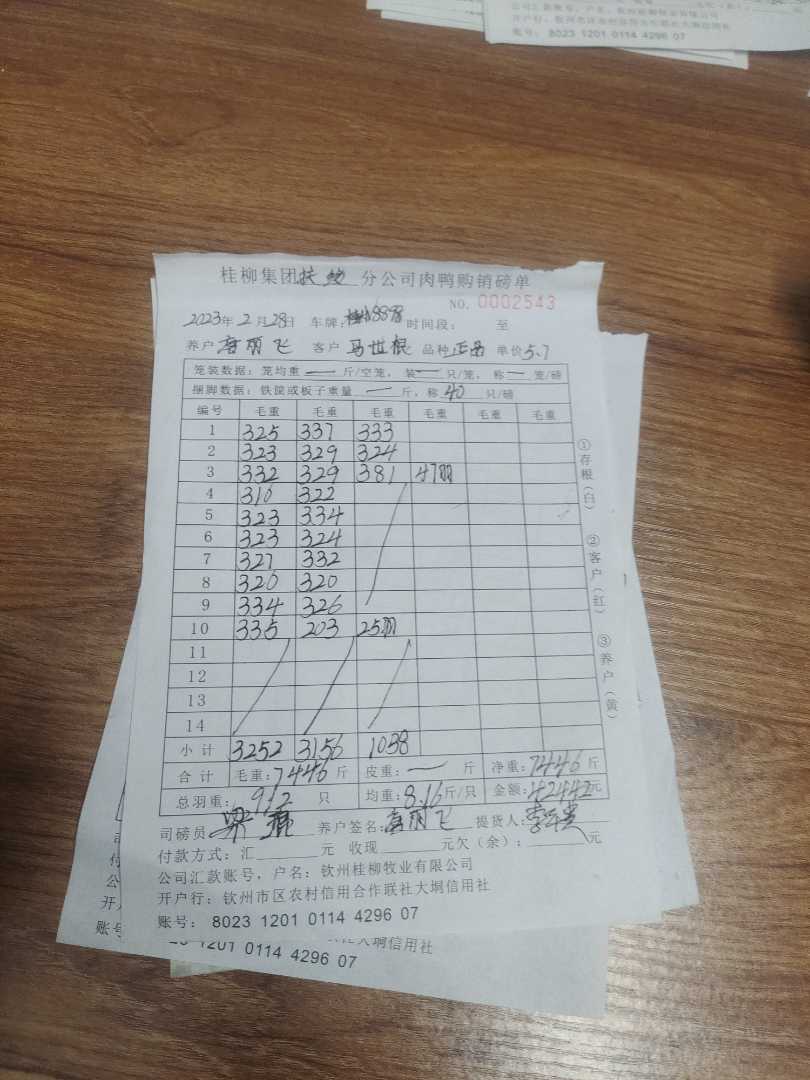 账号: 8023 1201 0114 4296 07
桂柳集团扶绥分公司肉鸭购销磅单
NO. 0002543
2023年2月28日 车牌: 8898 时间段: 至
养户 唐丽飞 客户 马世根 品种 正品 单价 5.7
笼装数据: 笼均重 — 斤/空笼, 装 — 只/笼, 称 — 笼/磅
捆脚数据: 铁筐或板子重量 — 斤, 称 40 只/磅
编号 毛重 毛重 毛重 毛重 毛重 毛重
1 325 337 333
2 323 329 324
3 332 329 381 47羽
4 310 322
5 323 334
6 323 324
7 327 332
8 320 320
9 334 326
10 335 203 25羽
11
12
13
14
小计 3252 3156 1038
合计 毛重: 7446 斤 皮重: — 斤 净重: 7446 斤
总羽重: 912 只 均重: 8.16 斤/只 金额: 42442元
司磅员 养户签名: 唐丽飞 提货人:
付款方式: 汇 元 收现 元欠(余): 元
公司汇款账号, 户名: 钦州桂柳牧业有限公司
开户行: 钦州市区农村信用合作联社大垌信用社
账号: 8023 1201 0114 4296 07
①存根(白)
②客户(红)
③养户(黄)
大垌信用社
1201 0114 4296 07